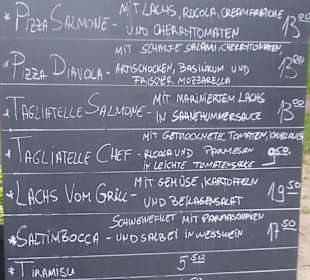 * PIZZA SALMONE - MIT LACHS, RUCOLA, CREAMFRAICHE
UND CHERRYTOMATEN 13,00
* PIZZA DIAVOLA - MIT SCHARFE SALAMI, CHERRYTOMATEN
ARTISCHOCKEN, BASILIKUM UND 13,00
FRISCHER MOZZARELLA
* TAGLIATELLE SALMONE - MIT MARINIERTEM LACHS
IN SAHNEHUMMERSAUCE 13,00
* TAGLIATELLE CHEF - MIT GETROCKNETE, TOMATEN, KNOBLAUCH
RUCOLA UND PARMESAN 9,50
IN LEICHTE TOMATENSAUCE
* LACHS VOM GRILL - MIT GEMÜSE, KARTOFFELN
UND BEILAGENSALAT 19,50
SCHWEINEFILET MIT PARMASCHINKEN
* SALTIMBOCCA - UND SALBEI IN WEISSWEIN 17,50
* TIRAMISU 5,50